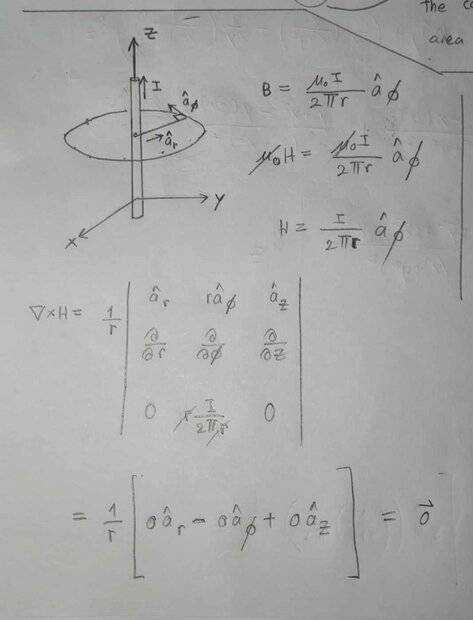 the
area
Z
I
âϕ
âr
Y
X
B = μ₀I / 2πr âϕ
μ₀H = μ₀I / 2πr âϕ
H = I / 2πr âϕ
∇×H = 1/r | âr râϕ âz |
∂/∂r ∂/∂ϕ ∂/∂z
0 r I/2πr 0
= 1/r [ 0âr - 0âϕ + 0âz ] = 0⃗